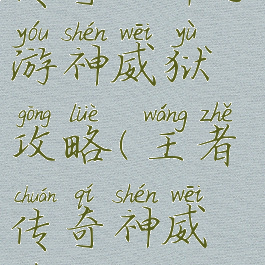 yóu shén wēi yù
游神威狱
gōng lüè wáng zhě
攻略(王者
chuán qí shén wēi
传奇神威